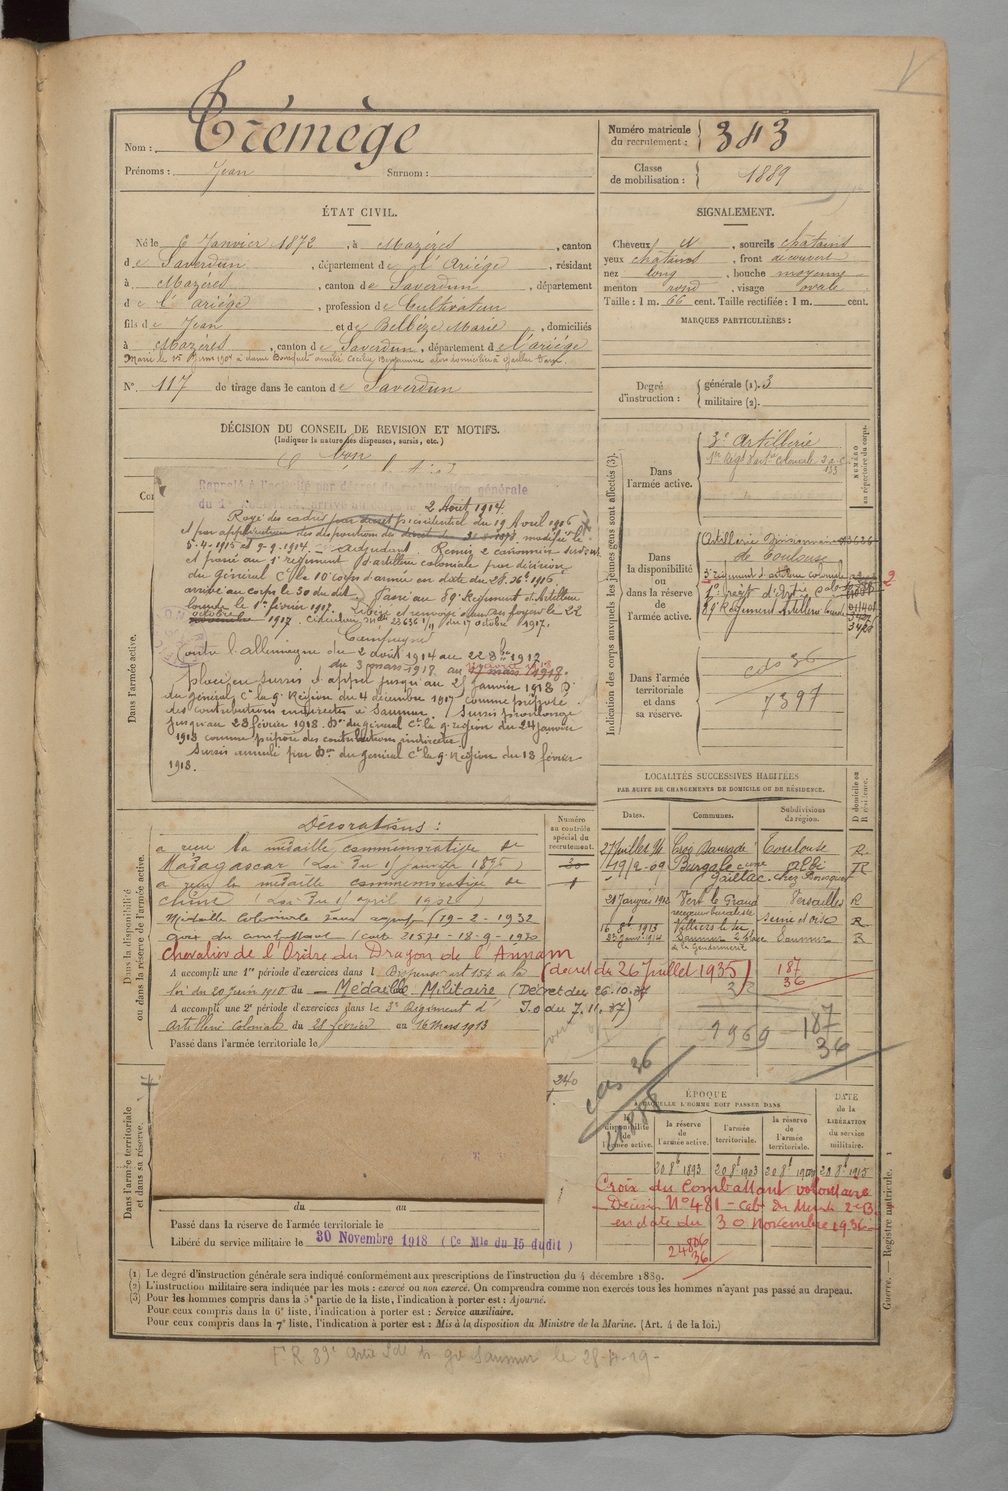 Nom : Trémège
Prénoms : Jean Surnom :
Numéro matricule du recrutement : 343
Classe de mobilisation : 1889
ÉTAT CIVIL.
Né le 6 Janvier 1872, à Mazères, canton
de Saverdun, département de l'Ariège, résidant
à Mazères, canton de Saverdun, département
de l'ariège, profession de Cultivateur
fils de Jean et de Belbèze Marie, domiciliés
à Mazères, canton de Saverdun, département de l'ariège
Marié le 15 1901 à dame Bousquet amélie Cécilia Benjamine domiciliée à Gaillac Tarn.
N°. 117 de tirage dans le canton de Saverdun
SIGNALEMENT.
Cheveux N, sourcils chatains
yeux chatains, front découvert
nez long, bouche moyenne
menton rond, visage ovale
Taille : 1 m. 66 cent. Taille rectifiée : 1 m. cent.
MARQUES PARTICULIÈRES :
Degré d'instruction : générale (1). 3
militaire (2).
DÉCISION DU CONSEIL DE REVISION ET MOTIFS.
(Indiquer la nature des dispenses, sursis, etc.)
bon
Dans l'armée active.
Rappelé à l'activité par décret de mobilisation générale
du 1er Août 1914, arrivé au corps le 2 Août 1914.
Rayé des cadres par décret présidentiel du 19 Avril 1916
et par application des dispositions des décret du 31-8-1878 modifié le
5-4-1915 et 9-9-1914. — adjudant. Remis 2e canonnier servant
et passé au 1er régiment d'artillerie coloniale par décision
du général Ct le 10e corps d'armée en date du 28 Xbre 1916,
arrivé au corps le 30 du dit. Passé au 89e Régiment d'Artillerie
lourde le 1er février 1917. Libéré et renvoyé dans ses foyers le 22
octobre 1917. Circulaire Mlle 23636 1/11 du 17 octobre 1917.
Campagne
Contre l'allemagne du 2 août 1914 au 22 8bre 1917
du 3 mars 1918 au
Placé en sursis d'appel jusqu'au 25 janvier 1918 Don
du général Ct la 9e Région du 4 décembre 1917 comme préposé
des contributions indirectes à Saumur. Sursis prolongé
jusqu'au 28 février 1918. Don du général Ct la 9e région du 24 janvier
1918 comme préposé des contributions indirectes.
Sursis annulé par Don du général Ct la 9e Région du 13 février
1918.
Indication des corps auxquels les jeunes gens sont affectés (3).
NUMÉRO au répertoire du corps.
Dans l'armée active.
3e Artillerie
1er Régt d'arte coloniale
Dans la disponibilité ou dans la réserve de l'armée active.
Artillerie Divisionnaire 3636
de Toulouse
3e régiment d'artillerie coloniale
1er Regt d'Artie colo
89e Régiment Artillerie Lourde
2
Dans l'armée territoriale et dans sa réserve.
cds 36
7397
LOCALITÉS SUCCESSIVES HABITÉES
PAR SUITE DE CHANGEMENTS DE DOMICILE OU DE RÉSIDENCE.
Dates. Communes. Subdivisions de région. D domicile ou R résidence.
27 juillet 94 Toulouse R
19/2-09 Albi R
Gaillac, chez Bousquet
21 Janvier 1912 Vert le Grand Versailles R
receveur buraliste
16 8bre 1913 Villiers le sec Seine et oise R
23 Janv. 1914 Saumur Saumur R
de la Gendarmerie
187
36
1969
187
36
Dans la disponibilité ou dans la réserve de l'armée active.
Numéro au contrôle spécial du recrutement.
Décorations :
a reçu la médaille commémorative de
Madagascar (Loi du 15 janvier 1895)
a reçu la médaille commémorative de
Chine (Loi du 15 avril 1902)
Médaille Coloniale sans agrafe (19-2-1932
Croix du combattant (carte 21571-18-9-1930
Chevalier de l'Ordre du Dragon de l'Annam
(décret du 26 Juillet 1935)
A accompli une 1re période d'exercices dans l Dispensé art 154 de la
loi du 20 juin 1910 du — Médaille Militaire (Décret du 26.10.37
A accompli une 2e période d'exercices dans le 3e Régiment d' J.o du 7.11.37)
Artillerie Coloniale du 28 février au 16 Mars 1913
Passé dans l'armée territoriale le
Dans l'armée territoriale et dans sa réserve.
240
cds 36
du au
Passé dans la réserve de l'armée territoriale le
Libéré du service militaire le 30 Novembre 1918 (Ce Mle du 15 dudit)
ÉPOQUE
A LAQUELLE L'HOMME DOIT PASSER DANS
la disponibilité de l'armée active. la réserve de l'armée active. l'armée territoriale. la réserve de l'armée territoriale.
DATE de la LIBÉRATION du service militaire.
20 8bre 1893 20 8bre 1903 20 8bre 1909 20 8bre 1915
Croix du Combattant volontaire
Décision N° 481 — Cab du Ministre 2e B.
en date du 30 novembre 1936
24806
36
(1) Le degré d'instruction générale sera indiqué conformément aux prescriptions de l'instruction du 4 décembre 1889.
(2) L'instruction militaire sera indiquée par les mots : exercé ou non exercé. On comprendra comme non exercés tous les hommes n'ayant pas passé au drapeau.
(3) Pour les hommes compris dans la 5e partie de la liste, l'indication à porter est : Ajourné.
Pour ceux compris dans la 6e liste, l'indication à porter est : Service auxiliaire.
Pour ceux compris dans la 7e liste, l'indication à porter est : Mis à la disposition du Ministre de la Marine. (Art. 4 de la loi.)
Guerre. — Registre matricule. 1